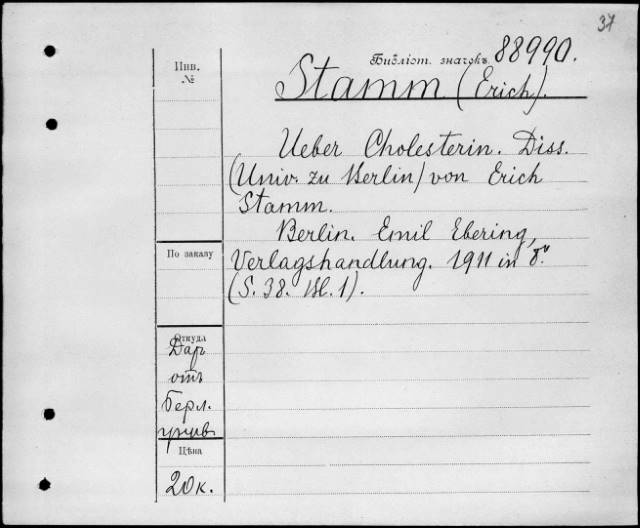 37
Библіот. значокъ 88990.
Инв.
№
Stamm (Erich).
Ueber Cholesterin. Diss.
(Univ. zu Berlin) von Erich
Stamm.
Berlin. Emil Ebering,
Verlagshandlung. 1911 in 8°.
(S. 38. Bl. 1).
По заказу
Откуда
Даръ
отъ
Берл.
унив.
Цѣна
20 к.